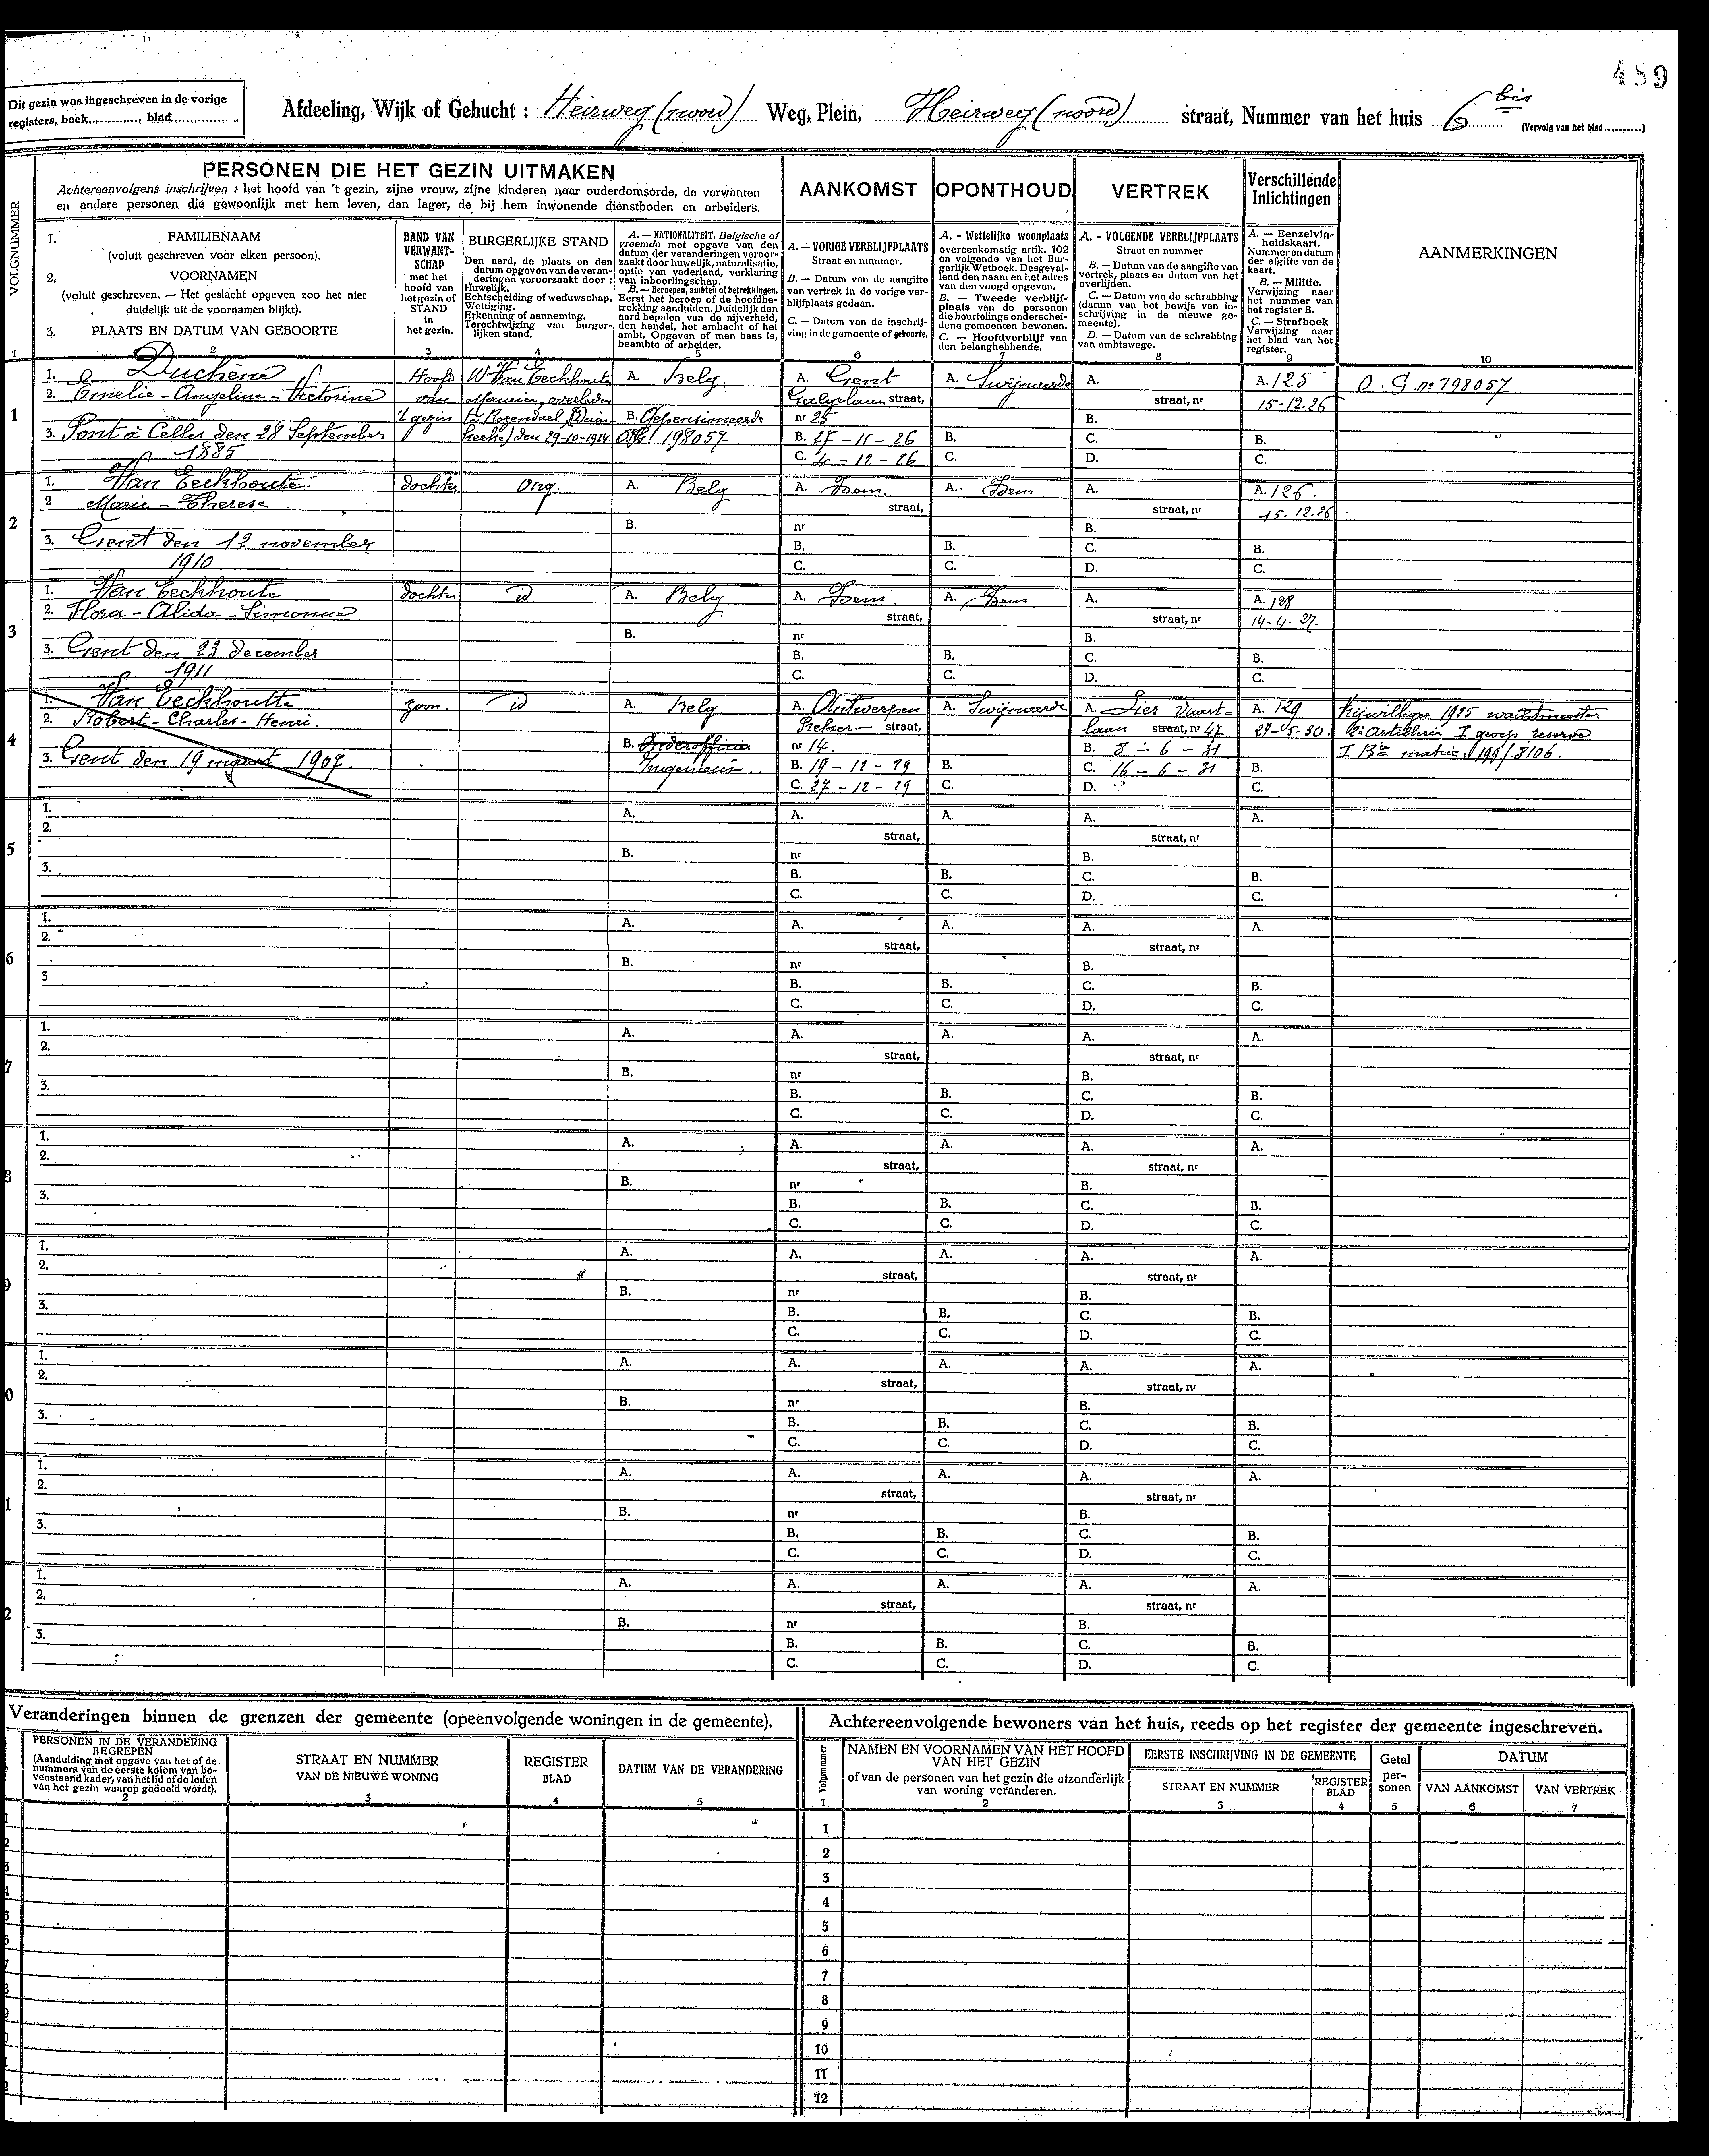 459
Dit gezin was ingeschreven in de vorige
registers, boek............, blad..............
Afdeeling, Wijk of Gehucht : Heirweg (noord) Weg, Plein, Heirweg (noord) straat, Nummer van het huis 6 bis
(Vervolg van het blad ..........)
VOLGNUMMER
PERSONEN DIE HET GEZIN UITMAKEN
Achtereenvolgens inschrijven : het hoofd van 't gezin, zijne vrouw, zijne kinderen naar ouderdomsorde, de verwanten
en andere personen die gewoonlijk met hem leven, dan lager, de bij hem inwonende dienstboden en arbeiders.
AANKOMST
OPONTHOUD
VERTREK
Verschillende
Inlichtingen
1. FAMILIENAAM
(voluit geschreven voor elken persoon).
2. VOORNAMEN
(voluit geschreven. — Het geslacht opgeven zoo het niet
duidelijk uit de voornamen blijkt).
3. PLAATS EN DATUM VAN GEBOORTE
BAND VAN
VERWANT-
SCHAP
met het
hoofd van
het gezin of
STAND
in
het gezin.
BURGERLIJKE STAND
Den aard, de plaats en den
datum opgeven van de veran-
deringen veroorzaakt door :
Huwelijk.
Echtscheiding of weduwschap.
Wettiging.
Erkenning of aanneming.
Terechtwijzing van burger-
lijken stand.
A. — NATIONALITEIT. Belgische of
vreemde met opgave van den
datum der veranderingen veroor-
zaakt door huwelijk, naturalisatie,
optie van vaderland, verklaring
van inboorlingschap.
B. — Beroepen, ambten of betrekkingen.
Eerst het beroep of de hoofdbe-
trekking aanduiden. Duidelijk den
aard bepalen van de nijverheid,
den handel, het ambacht of het
ambt. Opgeven of men baas is,
beambte of arbeider.
A. — VORIGE VERBLIJFPLAATS
Straat en nummer.
B. — Datum van de aangifte
van vertrek in de vorige ver-
blijfplaats gedaan.
C. — Datum van de inschrij-
ving in de gemeente of geboorte.
A. - Wettelijke woonplaats
overeenkomstig artik. 102
en volgende van het Bur-
gerlijk Wetboek. Desgeval-
lend den naam en het adres
van den voogd opgeven.
B. — Tweede verblijf-
plaats van de personen
die beurtelings onderschei-
dene gemeenten bewonen.
C. — Hoofdverblijf van
den belanghebbende.
A. - VOLGENDE VERBLIJFPLAATS
Straat en nummer
B. — Datum van de aangifte van
vertrek, plaats en datum van het
overlijden.
C. — Datum van de schrabbing
(datum van het bewijs van in-
schrijving in de nieuwe ge-
meente).
D. — Datum van de schrabbing
van ambtswege.
A. — Eenzelvig-
heidskaart.
Nummer en datum
der afgifte van de
kaart.
B. — Militie.
Verwijzing naar
het nummer van
het register B.
C. — Strafboek
Verwijzing naar
het blad van het
register.
AANMERKINGEN
1 2 3 4 5 6 7 8 9 10
1
1. Duchêne Hoofd W Van Eeckhoute A. Belg A. Gent A. Swijnaerde A. A. 125 O. G. nº 798057
2. Emelie - Angeline - Victorine van Maurice, overleden straat, straat, nr 15-12-26
't gezin B. Gepensioneerde nr 25 B.
3. Pont à Celles den 28 September den 29-10-1914 198057 B. 27-11-26 B. C. B.
1885 C. 4-12-26 C. D. C.
2
1. Van Eeckhoute dochter Ong. A. Belg A. Idem A. Idem A. A. 126.
2 Marie - Therese straat, straat, nr 15-12-26
B. nr B.
3. Gent den 12 november B. B. C. B.
1910 C. C. D. C.
3
1. Van Eeckhoute dochter id A. Belg A. Idem A. Idem A. A. 128
2. Flora - Alida - Simonne straat, straat, nr 14-4-27-
B. nr B.
3. Gent den 23 december B. B. C. B.
1911 C. C. D. C.
4
1. Van Eeckhoutte zoon id A. Belg A. Antwerpen A. Swijnaerde A. Lier Vaart- A. 129 Vrijwilliger 1925 wachtmeester
2. Robert - Charles - Henri. straat, laan straat, nr 47 27-5-30. artillerie I groep reserve
B. Onderofficier nr 14. B. 8-6-31 I Bie matric. 199/8106.
3. Gent den 19 maart 1907. Ingenieur B. 19-12-29 B. C. 16-6-31 B.
C. 27-12-29 C. D. C.
5
1. A. A. A. A. A.
2. straat, straat, nr
B. nr B.
3. B. B. C. B.
C. C. D. C.
6
1. A. A. A. A. A.
2. straat, straat, nr
B. nr B.
3 B. B. C. B.
C. C. D. C.
7
1. A. A. A. A. A.
2. straat, straat, nr
B. nr B.
3. B. B. C. B.
C. C. D. C.
8
1. A. A. A. A. A.
2. straat, straat, nr
B. nr B.
3. B. B. C. B.
C. C. D. C.
9
1. A. A. A. A. A.
2. straat, straat, nr
B. nr B.
3. B. B. C. B.
C. C. D. C.
0
1. A. A. A. A. A.
2. straat, straat, nr
B. nr B.
3. B. B. C. B.
C. C. D. C.
1
1. A. A. A. A. A.
2. straat, straat, nr
B. nr B.
3. B. B. C. B.
C. C. D. C.
2
1. A. A. A. A. A.
2. straat, straat, nr
B. nr B.
3. B. B. C. B.
C. C. D. C.
Veranderingen binnen de grenzen der gemeente (opeenvolgende woningen in de gemeente).
PERSONEN IN DE VERANDERING
BEGREPEN
(Aanduiding met opgave van het of de
nummers van de eerste kolom van bo-
venstaand kader, van het lid of de leden
van het gezin waarop gedoeld wordt).
STRAAT EN NUMMER
VAN DE NIEUWE WONING
REGISTER
BLAD
DATUM VAN DE VERANDERING
2 3 4 5
Achtereenvolgende bewoners van het huis, reeds op het register der gemeente ingeschreven.
Volgnummer
NAMEN EN VOORNAMEN VAN HET HOOFD
VAN HET GEZIN
of van de personen van het gezin die afzonderlijk
van woning veranderen.
EERSTE INSCHRIJVING IN DE GEMEENTE
STRAAT EN NUMMER
REGISTER
BLAD
Getal
per-
sonen
DATUM
VAN AANKOMST
VAN VERTREK
1 2 3 4 5 6 7
1
2
3
4
5
6
7
8
9
10
11
12